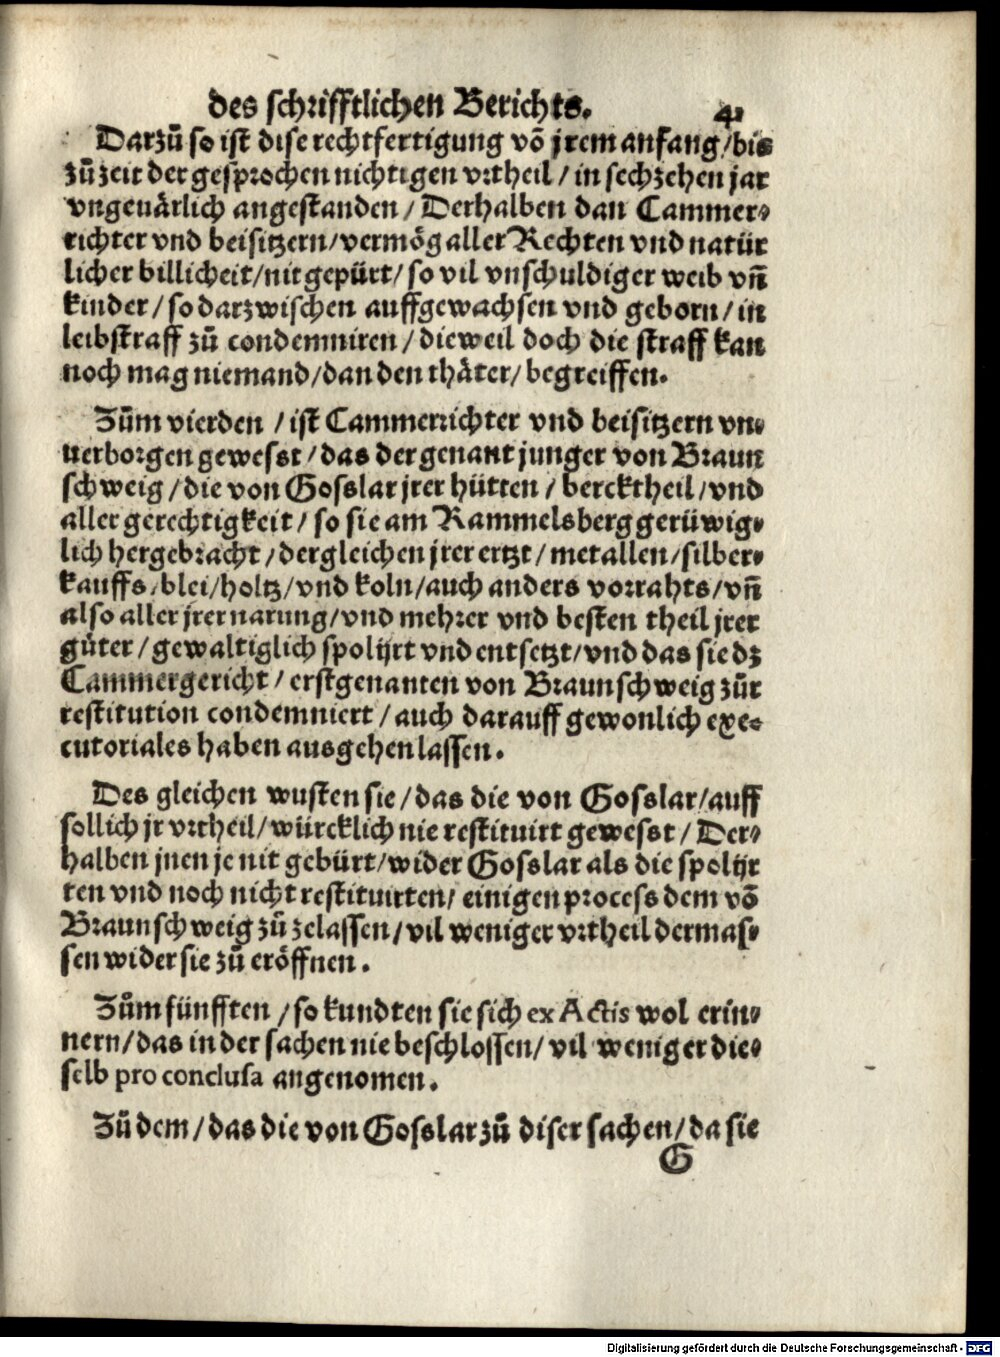 des schrifftlichen Berichts. 41
Darzů so ist dise rechtfertigung võ jrem anfang/bis
zů zeit der gesprochen nichtigen vrtheil/in sechzehen jar
vngeuärlich angestanden/Derhalben dan Cammer⸗
richter vnd beisitzern/vermög aller Rechten vnd natür
licher billicheit/nit gepürt/so vil vnschuldiger weib vñ
kinder/so darzwischen auffgewachsen vnd geborn/in
leibstraff zů condemniren/dieweil doch die straff kan
noch mag niemand/dan den thäter/begreiffen.
Zům vierden/ist Cammerrichter vnd beisitzern vn⸗
uerborgen gewesst/das der genant junger von Braun
schweig/die von Gosslar jrer hütten/bercktheil/vnd
aller gerechtigkeit/so sie am Rammelsberg gerüwig⸗
lich hergebracht/dergleichen jrer ertzt/metallen/silber⸗
kauffs/blei/holtz/vnd koln/auch anders vorrahts/vñ
also aller jrer narung/vnd mehrer vnd besten theil jrer
güter/gewaltiglich spolijrt vnd entsetzt/vnd das sie dz
Cammergericht/erstgenanten von Braunschweig zůr
restitution condemniert/auch darauff gewonlich exe⸗
cutoriales haben ausgehen lassen.
Des gleichen wusten sie/das die von Gosslar/auff
sollich jr vrtheil/würcklich nie restituirt gewesst/Der⸗
halben jnen je nit gebürt/wider Gosslar als die spolijr
ten vnd noch nicht restituirten/einigen process dem võ
Braunschweig zů zelassen/vil weniger vrtheil dermas⸗
sen wider sie zů eröffnen.
Zům fünfften/so kundten sie sich ex Actis wol erin⸗
nern/das in der sachen nie beschlossen/vil weniger die⸗
selb pro conclusa angenomen.
Zů dem/das die von Gosslar zů diser sachen/da sie
G
Digitalisierung gefördert durch die Deutsche Forschungsgemeinschaft - DFG